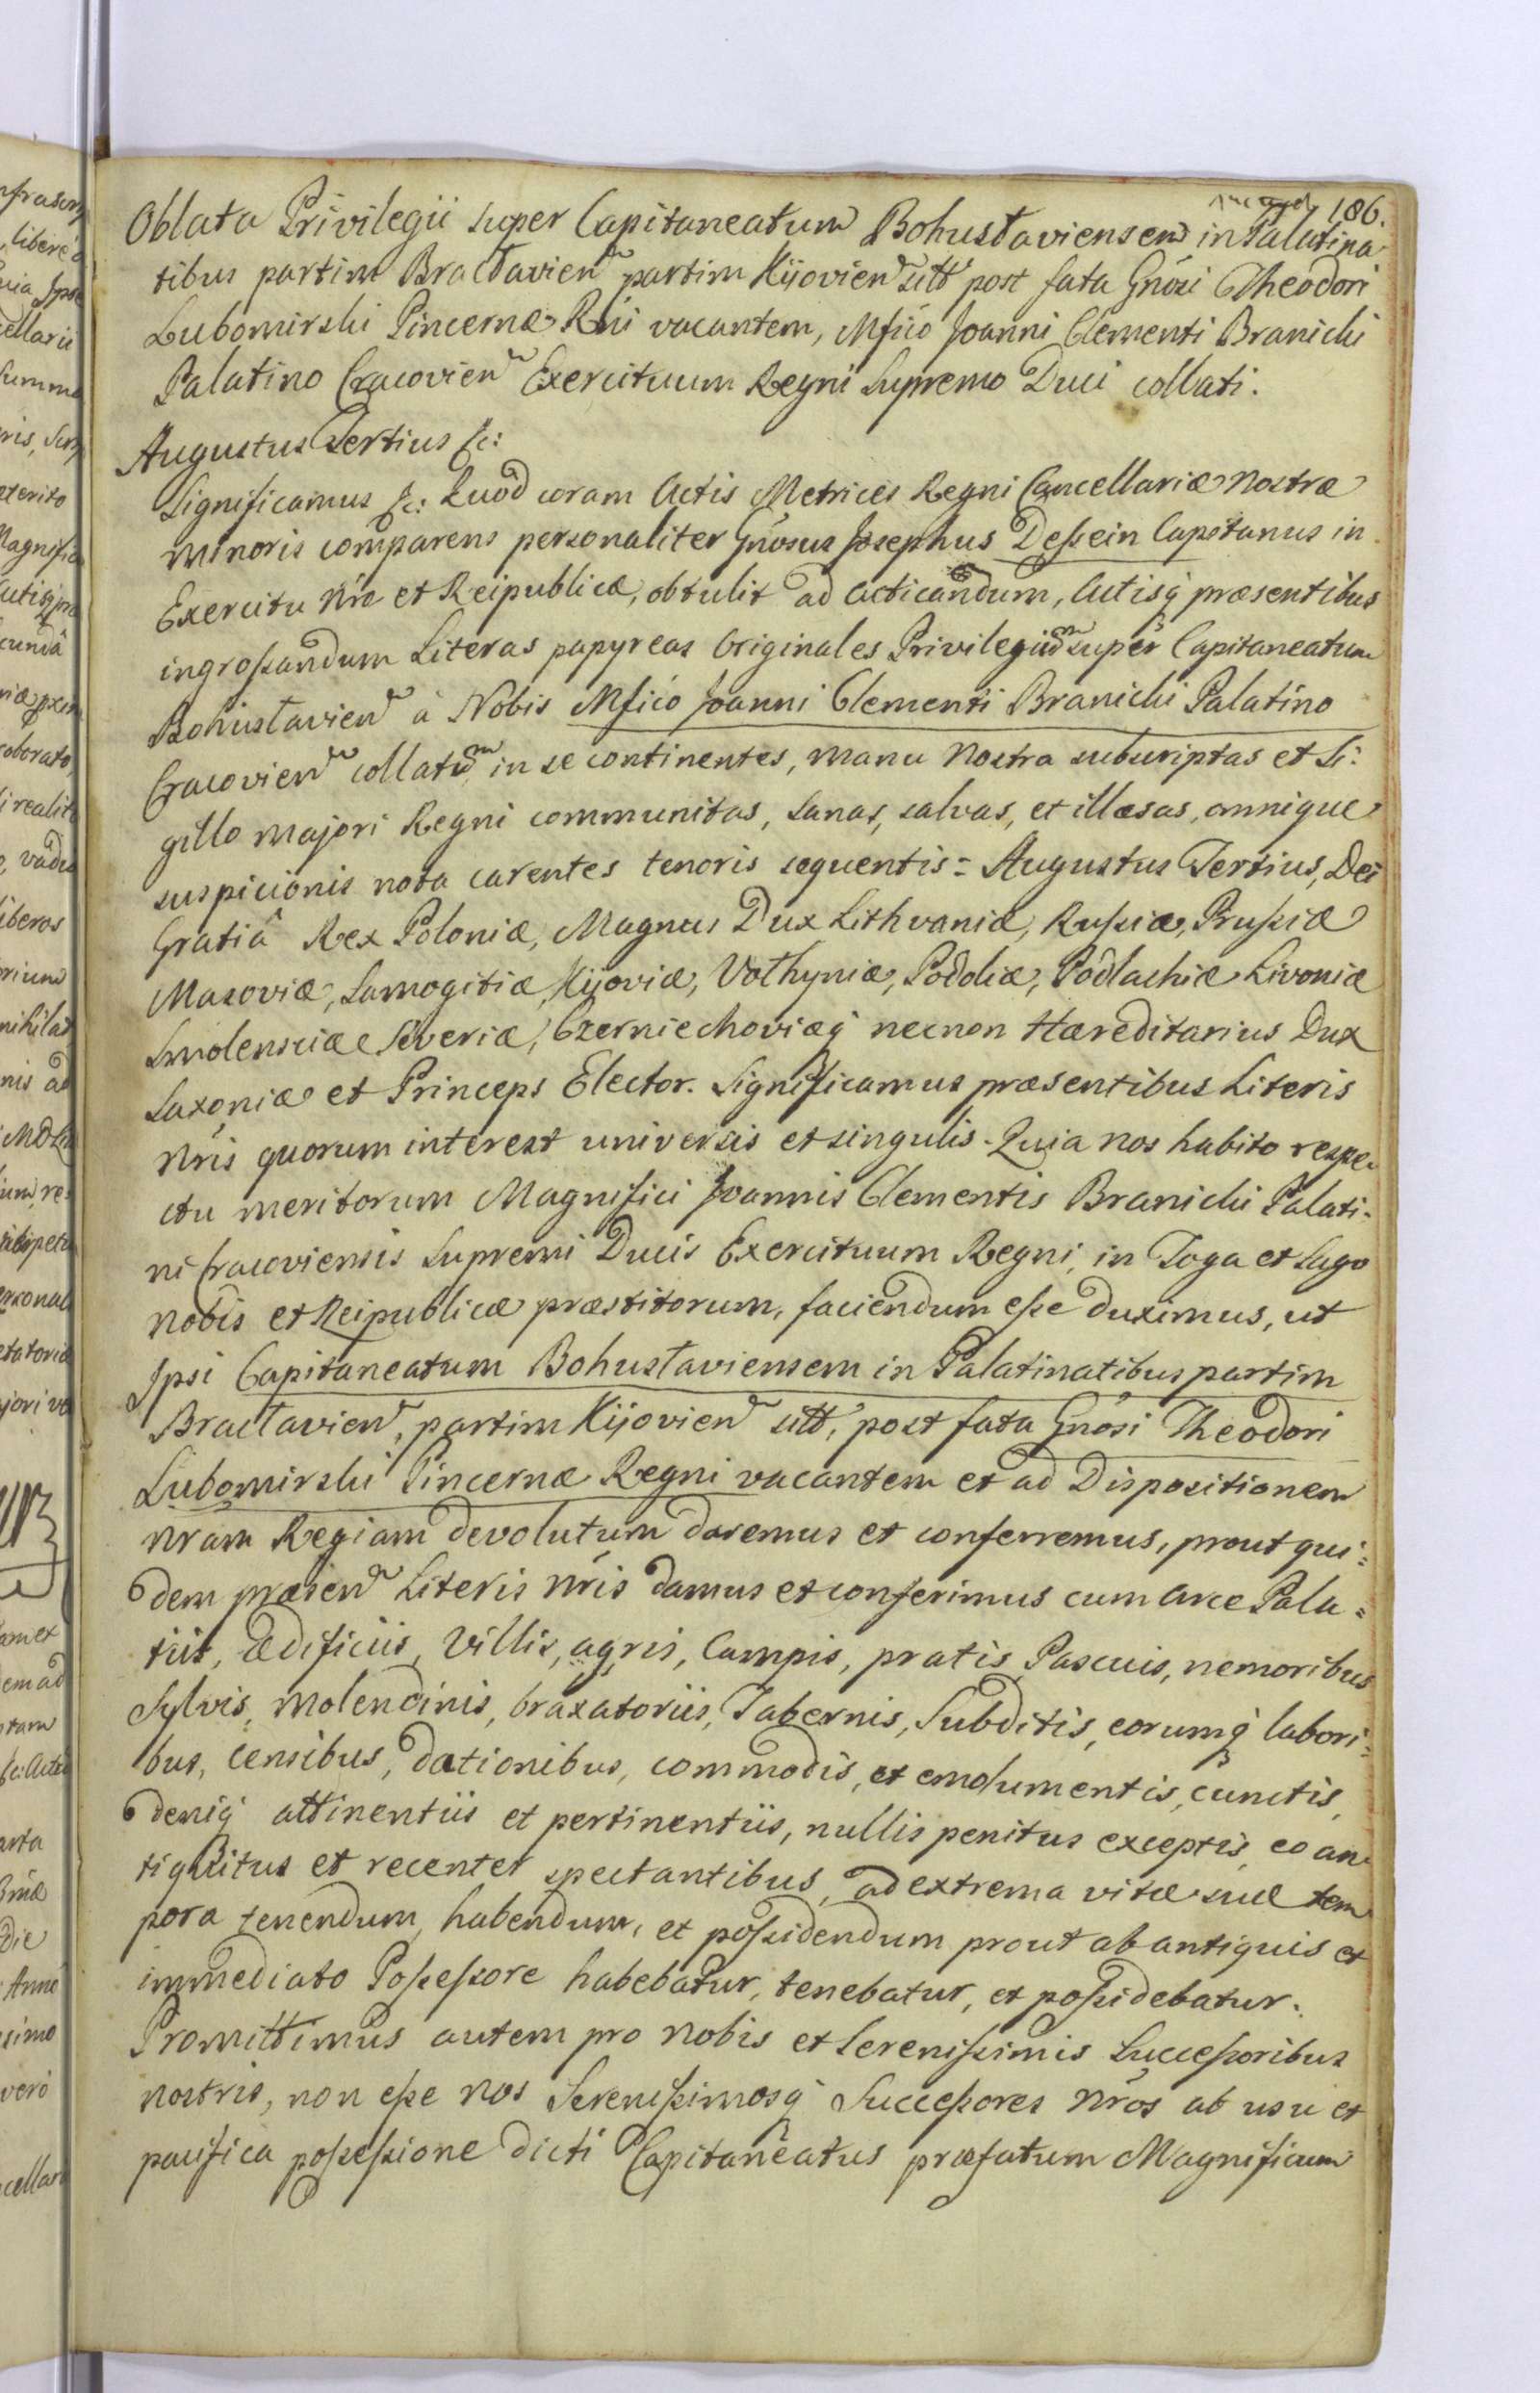 186.
Oblata Privilegii super Capitaneatum Bohuslaviensem in Palatina
tibus partim Braclavien partim Kijovien sitt post fata Gnosi Theodori
Lubomirski Pincernæ Rni vacantem, Mfico Joanni Clementi Branicki
Palatino Cracovien Exercituum Regni Supremo Duci collati.
Augustus Tertius &c:
Significamus &c: Quod coram Actis Metrices Regni Cancellariæ Nostræ
Minoris comparens personaliter Gnosus Josephus Dessein Capitanus in
Exercitu Nro et Reipublicæ, obtulit ad acticandum, Actisq præsentibus
ingrossandum Literas papyreas Originales Privilegium super Capitaneatum
Bohuslavien à Nobis Mfico Joanni Clementi Branicki Palatino
Cracovien collatum in se continentes, manu Nostra subscriptas et Si:
gillo majori Regni communitas, sanas, salvas, et illæsas, omnique
suspicionis nota carentes tenoris sequentis = Augustus Tertius, Dei
Gratiâ Rex Poloniæ, Magnus Dux Lithvaniæ, Russiæ, Prussiæ
Masoviæ, Samogitiæ, Kijoviæ, Volhyniæ, Podoliæ, Podlachiæ Livoniæ
Smolensciæ Severiæ, Czerniechoviæq necnon Hæreditarius Dux
Saxoniæ et Princeps Elector. Significamus præsentibus Literis
Nris quorum interest universis et singulis. Quia nos habito respe
ctu meritorum Magnifici Joannis Clementis Branicki Palati-
ni Cracoviensis Supremi Ducis Exercituum Regni, in Toga et Sago
nobis et Reipublicæ præstitorum, faciendum esse duximus, ut
Ipsi Capitaneatum Bohuslaviensem in Palatinatibus partim
Braclavien, partim Kijovien sitt, post fata Gnosi Theodori
Lubomirski Pincernæ Regni vacantem et ad Dispositionem
Nram Regiam devolutum daremus et conferremus, prout qui:
dem præsen Literis Nris damus et conferimus cum Arce Pala=
tiis, Ædificiis, Villis, agris, Campis, pratis Pascuis, nemoribus
Sylvis, Molendinis, braxatoriis, Tabernis, Subditis, eorumq labori:
bus, Censibus, dationibus, commodis, et emolumentis, cunctis,
deniq attinentiis et pertinentiis, nullis penitus exceptis, eo an
tiquitus et recenter spectantibus, ad extrema vitæ suæ tem
pora tenendum, habendum, et possidendum prout ab antiquis et
immediato Possessore habebatur, tenebatur, et possidebatur.
Promittimus autem pro Nobis et Serenissimis Successoribus
nostris, non esse Nos Serenissimosq Successores Nros ab usu et
pacifica possessione dicti Capitaneatus præfatum Magnificum